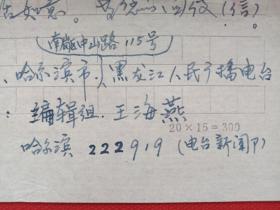 (南岗中山路115号)
、哈尔滨市、黑龙江人民广播电台
: 编辑组．王海燕
20×15=300
哈尔滨 222919 (电台新闻部)